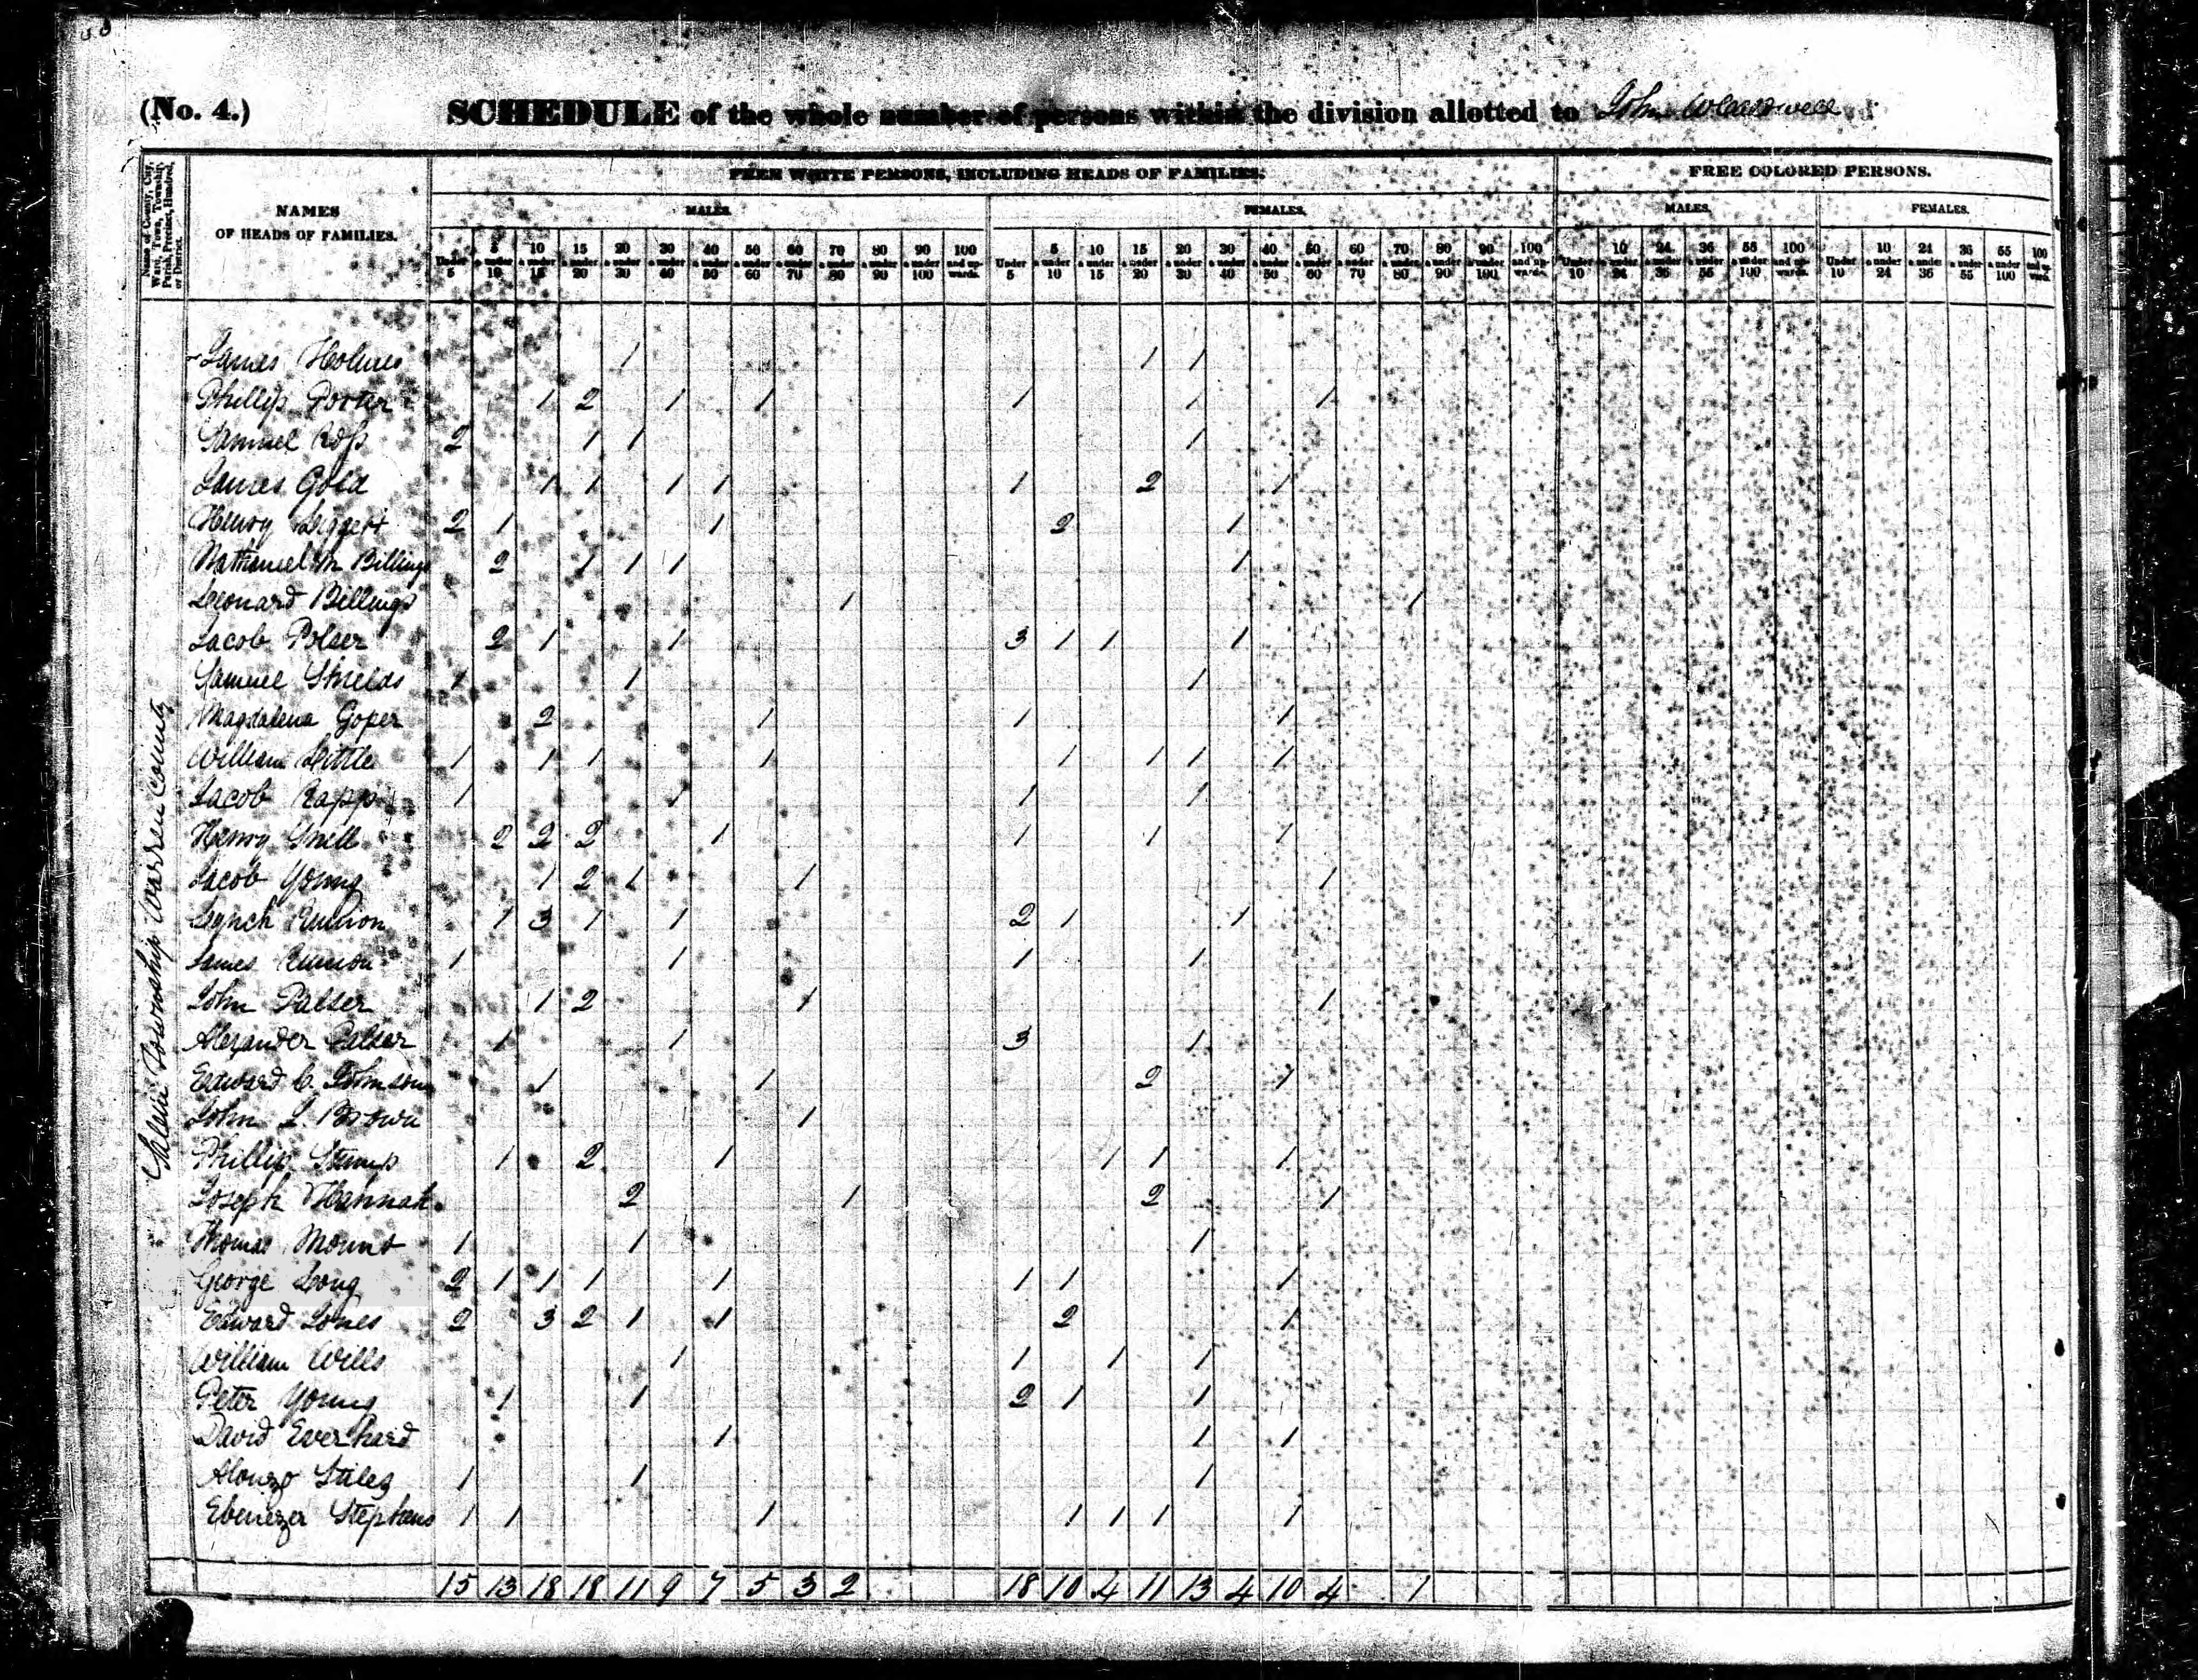 (No. 4.) SCHEDULE of the whole number of persons within the division allotted to John
Name of County, City, Ward, Town, Township, Parish, Precinct, Hundred, or District.
NAMES OF HEADS OF FAMILIES.
FREE WHITE PERSONS, INCLUDING HEADS OF FAMILIES.
FREE COLORED PERSONS.
MALES. FEMALES. MALES. FEMALES.
Under 5 | 5 & under 10 | 10 & under 15 | 15 & under 20 | 20 & under 30 | 30 & under 40 | 40 & under 50 | 50 & under 60 | 60 & under 70 | 70 & under 80 | 80 & under 90 | 90 & under 100 | 100 and upwards. | Under 5 | 5 & under 10 | 10 & under 15 | 15 & under 20 | 20 & under 30 | 30 & under 40 | 40 & under 50 | 50 & under 60 | 60 & under 70 | 70 & under 80 | 80 & under 90 | 90 & under 100 | 100 and upwards. | Under 10 | 10 & under 24 | 24 & under 36 | 36 & under 55 | 55 & under 100 | 100 and upwards. | Under 10 | 10 & under 24 | 24 & under 36 | 36 & under 55 | 55 & under 100 | 100 and upward.
Salem Township Warren County
James Holmes 1 1 1
Phillip Porter 1 2 1 1 1 1 1
Samuel Ross 2 1 1 1
James Gold 1 1 1 1 1 2 1
Henry Liggett 2 1 1 2 1
Nathaniel M Billings 2 1 1 1 1
Leonard Billings 1 1
Jacob Polser 2 1 1 3 1 1 1
Samuel Shields 1 1 1
Magdalena Goper 2 1 1 1
William Little 1 1 1 1 1 1 1 1
Jacob Rapp 1 1 1 1
Henry Snell 2 2 2 1 1 1 1
Jacob Young 1 2 1 1 1
Lynch Runion 1 3 1 1 2 1 1
James Runion 1 1 1 1
John Palser 1 2 1 1
Alexander Palser 1 1 3 1
Edward C. Johnson 1 1 2 1
John L. Brown 1
Phillip Stump 1 2 1 1 1 1
Joseph Hannah 2 1 2 1
Thomas Mount 1 1 1
George Long 2 1 1 1 1 1 1 1
Edward Jones 2 3 2 1 1 2 1
William Wills 1 1 1 1
Peter Young 1 1 2 1 1
David Everhard 1 1 1
Alonzo Stiles 1 1 1
Ebenezer Stephens 1 1 1 1 1 1 1
15 13 18 18 11 9 7 5 3 2 18 10 4 11 13 4 10 4 1